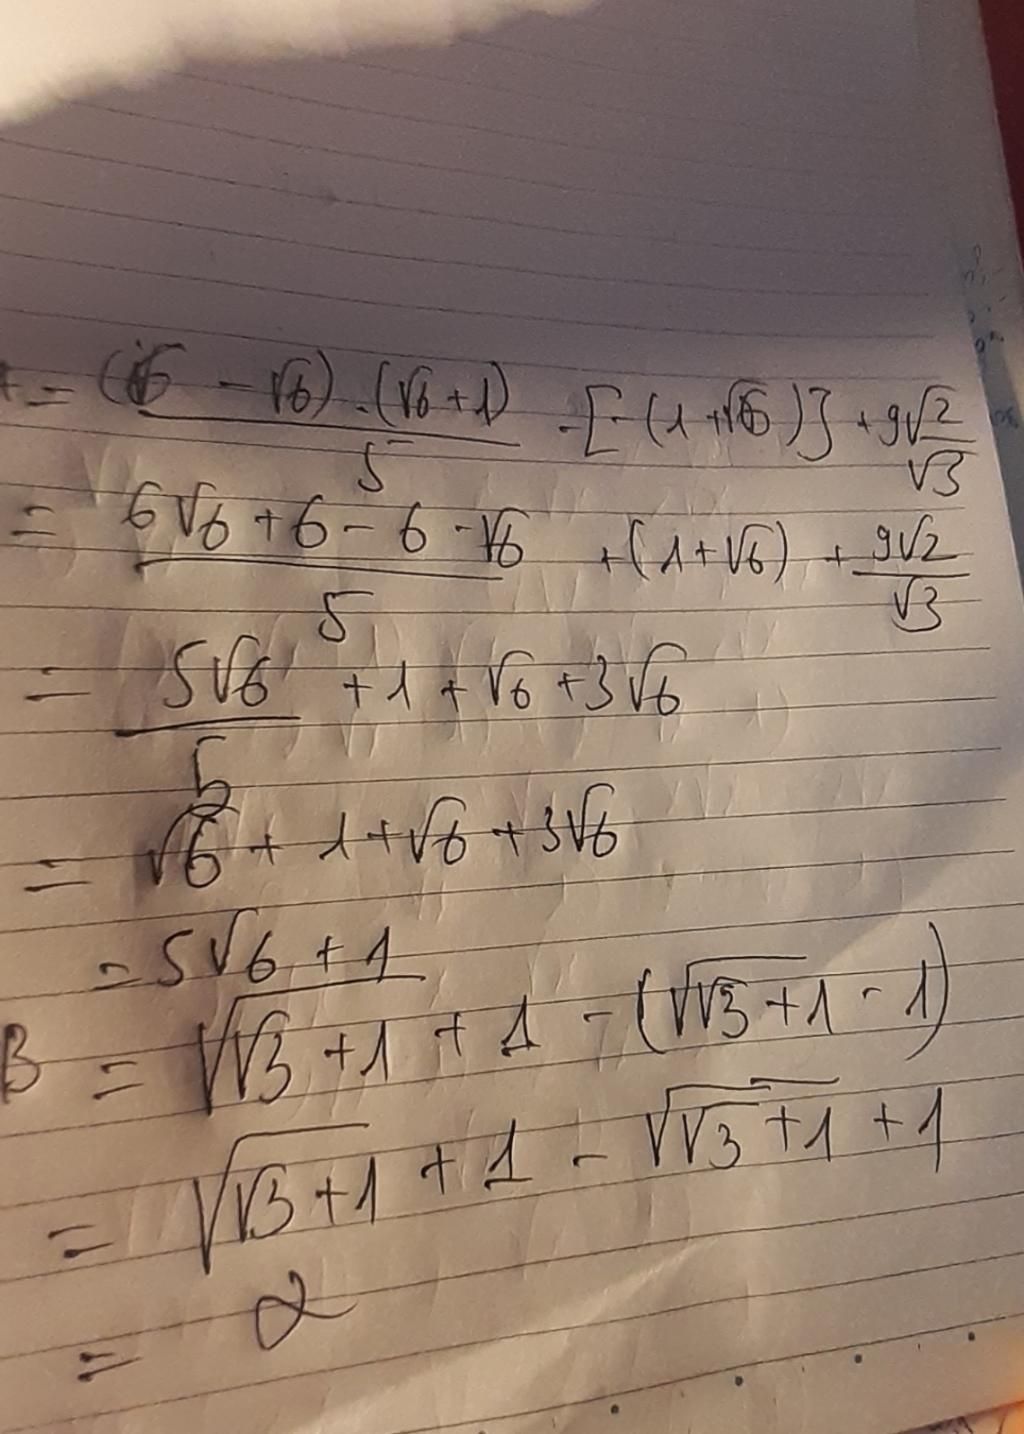 = (6 - √6) . (√6 + 1) / 5 - [- (1 + √6)] + 9√2 / √3
= 6√6 + 6 - 6 - √6 / 5 + (1 + √6) + 9√2 / √3
= 5√6 / 5 + 1 + √6 + 3√6
= √6 + 1 + √6 + 3√6
= 5√6 + 1
B = √(√3 + 1) + 1 - (√(√3 + 1) - 1)
= √(√3 + 1) + 1 - √(√3 + 1) + 1
= 2